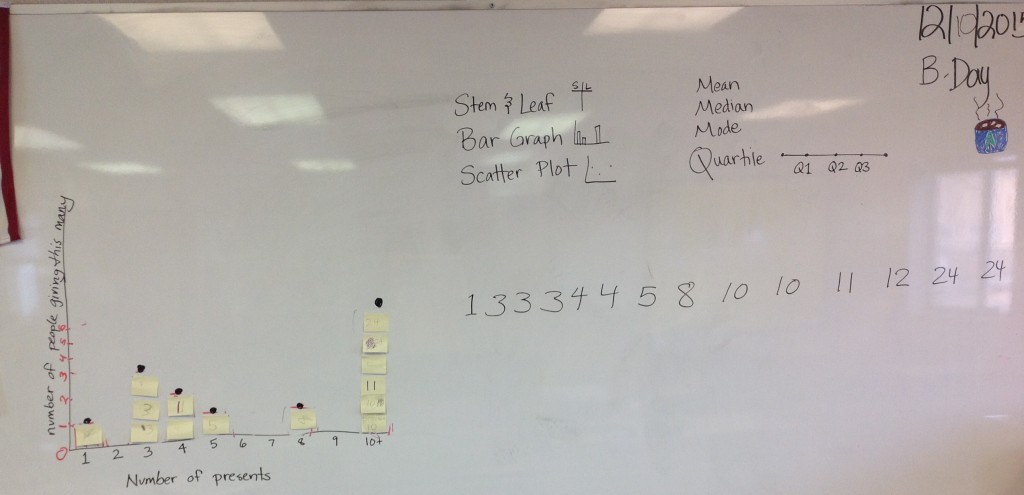 12/10/2015
B-Day
S|L
Stem & Leaf
Bar Graph
Scatter Plot
Mean
Median
Mode
Quartile
Q1 Q2 Q3
1 3 3 3 4 4 5 8 10 10 11 12 24 24
number of people giving this many
6
5
4
3
2
1
0
3
11
5
1 2 3 4 5 6 7 8 9 10+
Number of presents